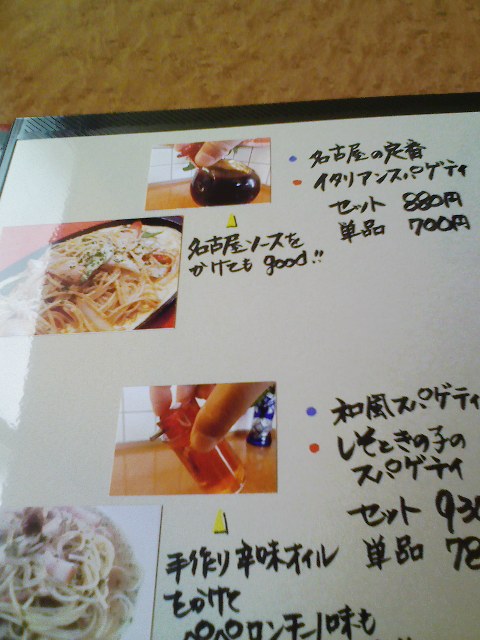 名古屋の定番
イタリアンスパゲティ
セット 880円
単品 700円
名古屋ソースを
かけても good!!
和風スパゲティ
しそときの子の
スパゲティ
セット 930
単品 78
手作り辛味オイル
をかけて
ペペロンチーノ味も